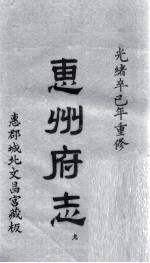 光緒辛巳年重修
惠州府志
九
惠郡城北文昌宮藏板